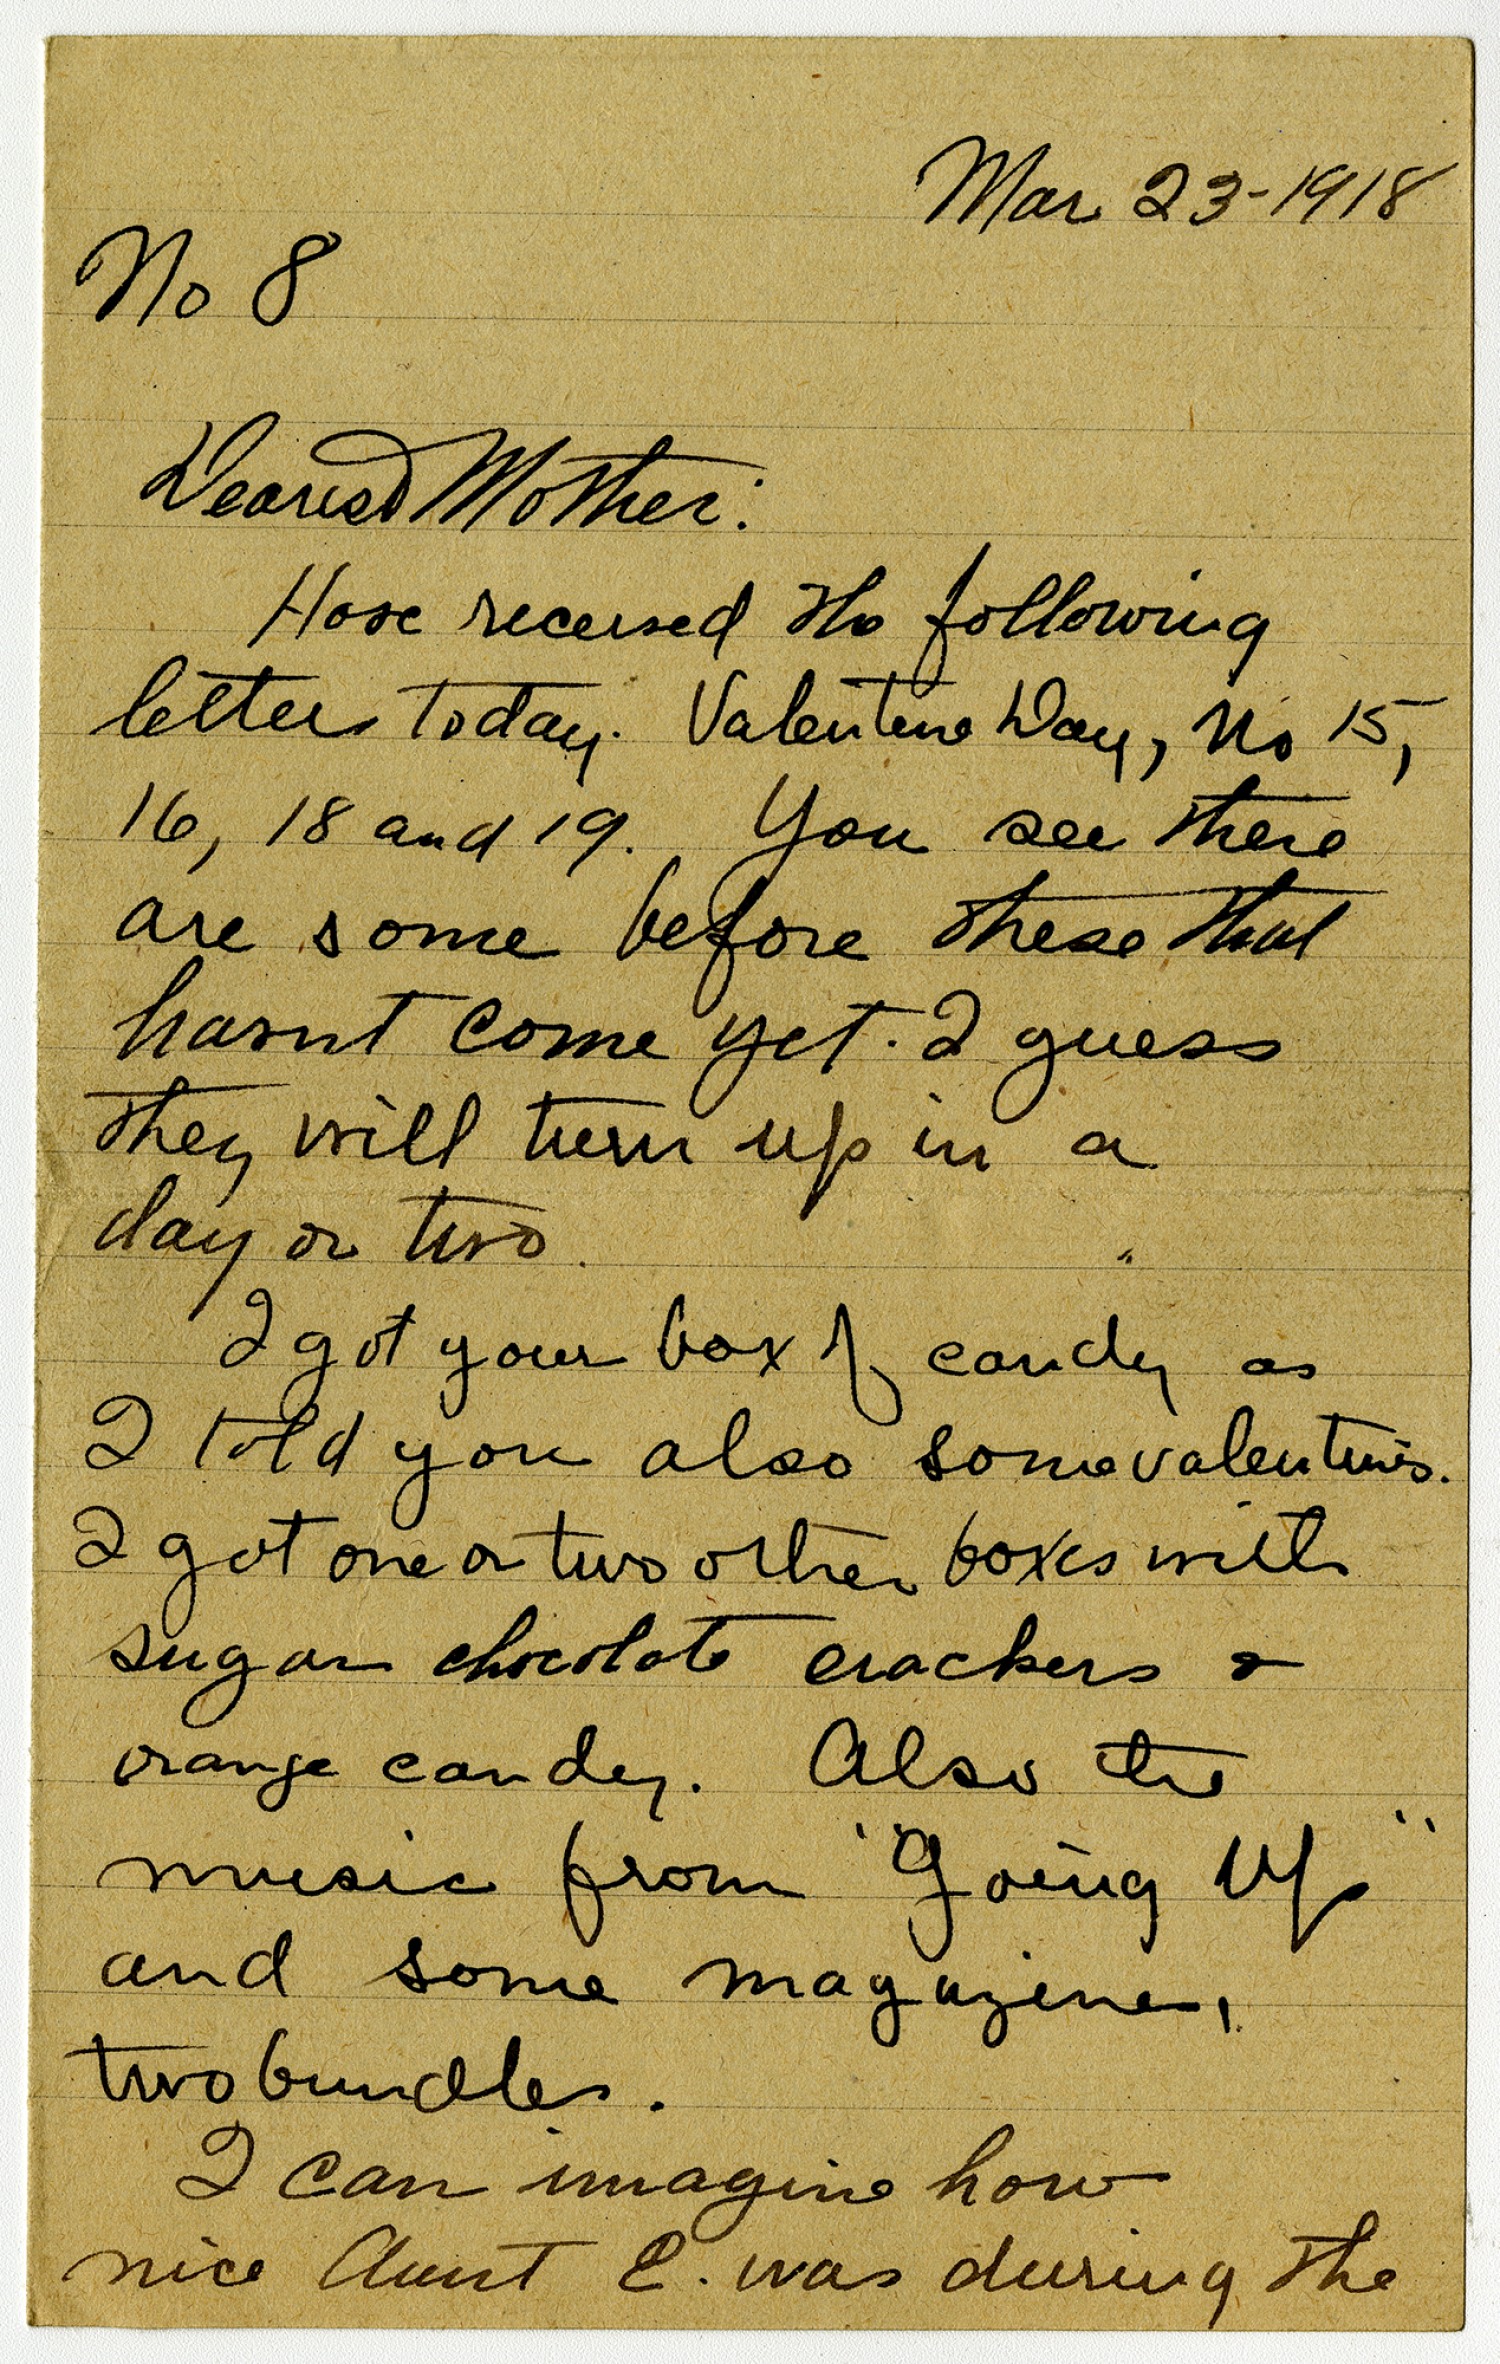 Mar 23-1918
No 8
Dearest Mother:
Have received the following
letters today. Valentine Day, No 15,
16, 18 and 19. You see there
are some before these that
hasnt come yet. I guess
they will turn up in a
day or two.
I got your box of candy as
I told you also some valentines.
I got one or two other boxes with
sugar chocolate crackers &
orange candy. Also the
music from "Going Up"
and some magazines,
two bundles.
I can imagine how
nice Aunt E. was during the